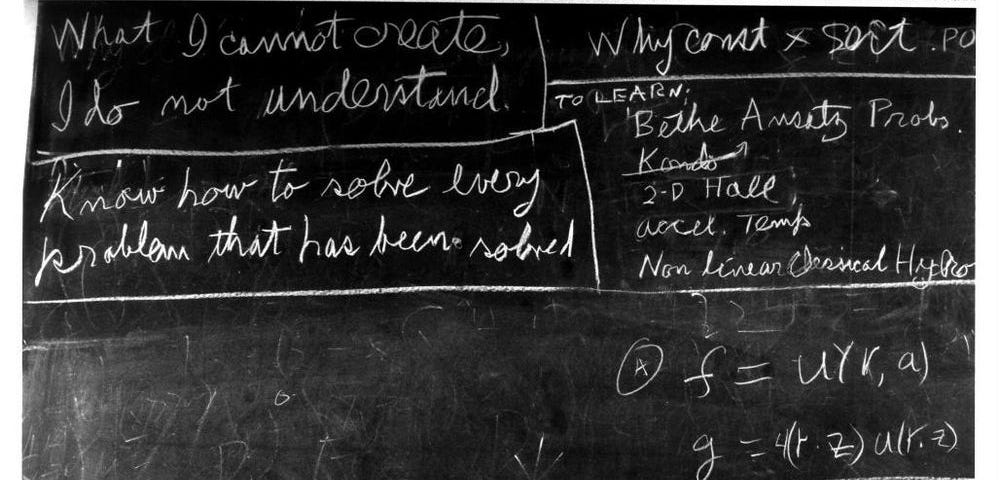 What I cannot create,
I do not understand.
Know how to solve every
problem that has been solved
Why const × sort . PO
TO LEARN:
Bethe Ansatz Probs.
Kondo
2-D Hall
accel. Temp
Non linear Classical Hydro
Ⓐ f = u(r, a)
g = 4(r·z) u(r·z)